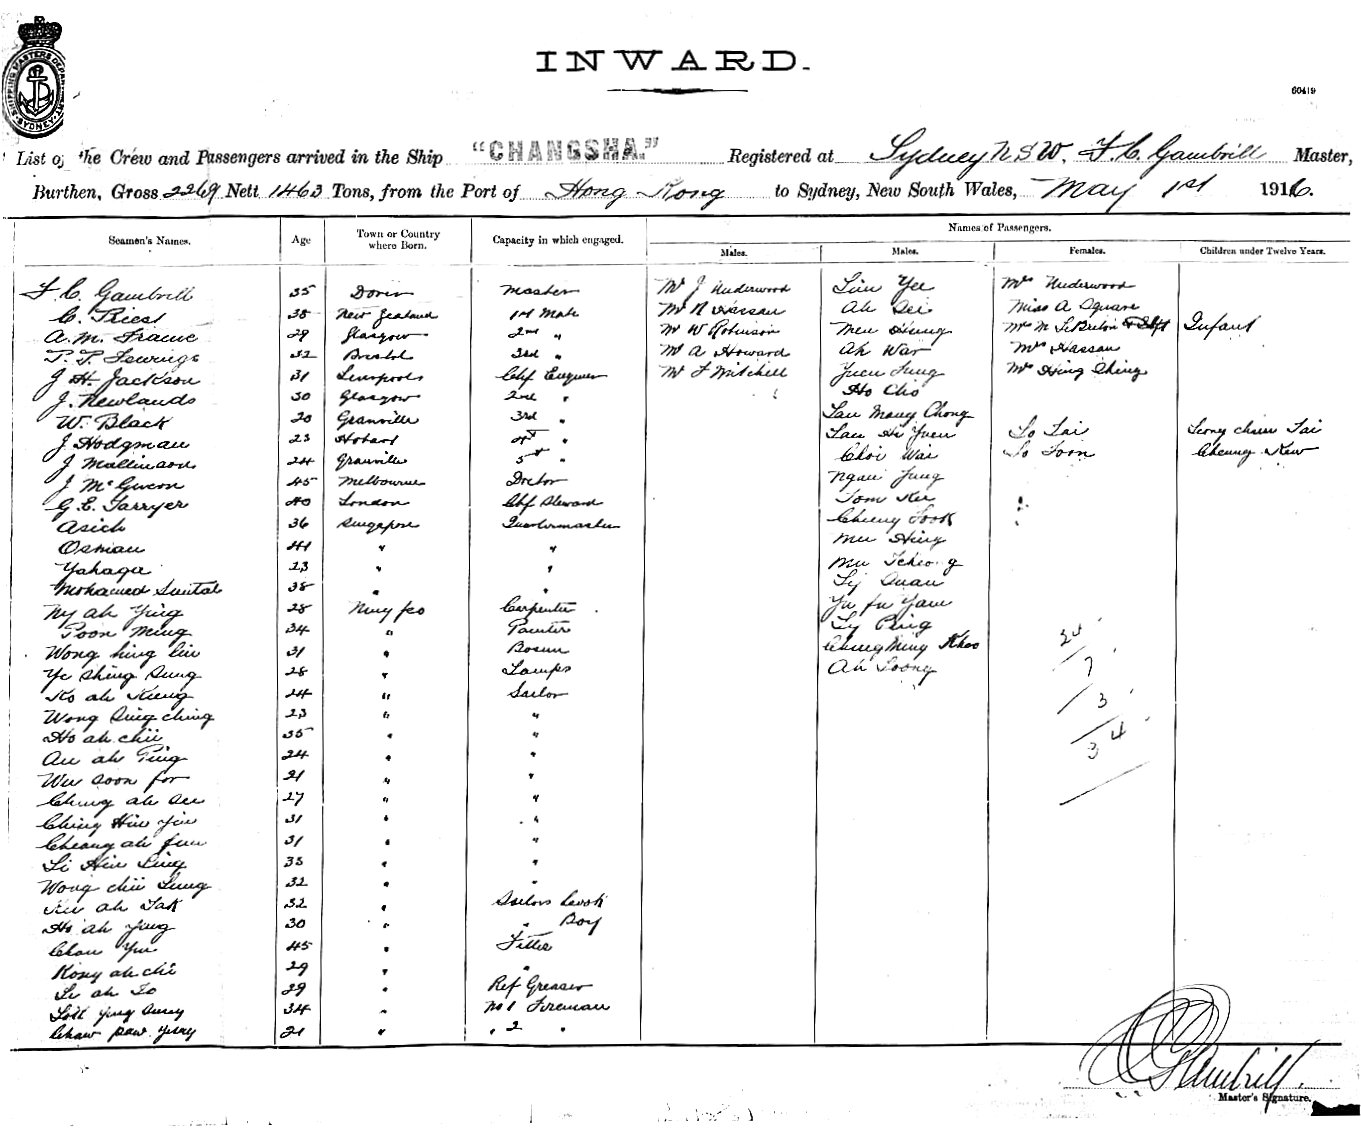 SHIPPING MASTERS DEPARTMENT SYDNEY
INWARD.
60419
List of the Crew and Passengers arrived in the Ship "CHANGSHA." Registered at Sydney N S W. F. C. Gambrill Master,
Burthen, Gross 2269 Nett 1463 Tons, from the Port of Hong Kong to Sydney, New South Wales, May 1st 1916.
Seamen's Names. Age Town or Country where Born. Capacity in which engaged. Names of Passengers.
Males. Males. Females. Children under Twelve Years.
F. C. Gambrill 35 Dover Master Mr J Underwood Mrs Underwood
C. Ries 38 New Zealand 1st Mate Mr R Hassan Ah Sei Miss A Square
A. M. Frame 29 Glasgow 2nd " Mr W Robinson Infant
32 Bristol 3rd " Mr A Howard Ah War Mrs Hassan
J H Jackson 31 Liverpool Chf Engineer Mr F Mitchell Yuen Fung Mrs Hing Ching
J. Newlands 30 Glasgow 2nd " Ho Cho
W. Black 20 Granville 3rd " Lau Mong Chong
J Hodgman 23 Hobart 4th " Lau Hi Yuen So Tai Leong Chun Tai
J Mallinson 24 Granville 5th " Choi Wai So Toon Cheung Kew
J McGueon 45 Melbourne Doctor Ngan Jung
G. E. Tarryer 40 London Chf Steward Tom Kee
Asich 36 Singapore Quartermaster Cheung Sook
Osman 41 " " Mee Hing
Yahaya 23 " " Mee Tcheong
Mohamed 38 " " Sy Quan
Ny ah Ying 28 Carpenter Yu fu Yam
Poon Ming 34 " Painter Ly Ping
Wong hing 31 " Bosun Chung Ming Khoo
Ye Shing Sung 28 " Lamps Ah Loong
Ko ah Kung 24 " Sailor
Wong Sing Ching 23 " "
Ho ah chii 35 " "
Au ah Ping 24 " "
Wu Soon for 21 " "
Chung ah See 27 " "
Ching Hin Yin 31 " "
Cheong ah fun 31 " "
Li Hin Ling 33 " "
Wong chii Lung 32 " "
Ku ah Tak 32 " Sailors Cook
Ho ah Ying 30 " " Boy
Chan Yue 45 " Fitter
Kong ah chi 29 " "
Li ah So 29 " Ref Greaser
34 " No 1 Fireman
21 " " 2 "
24
7
3
34
Gambrill.
Master's Signature.